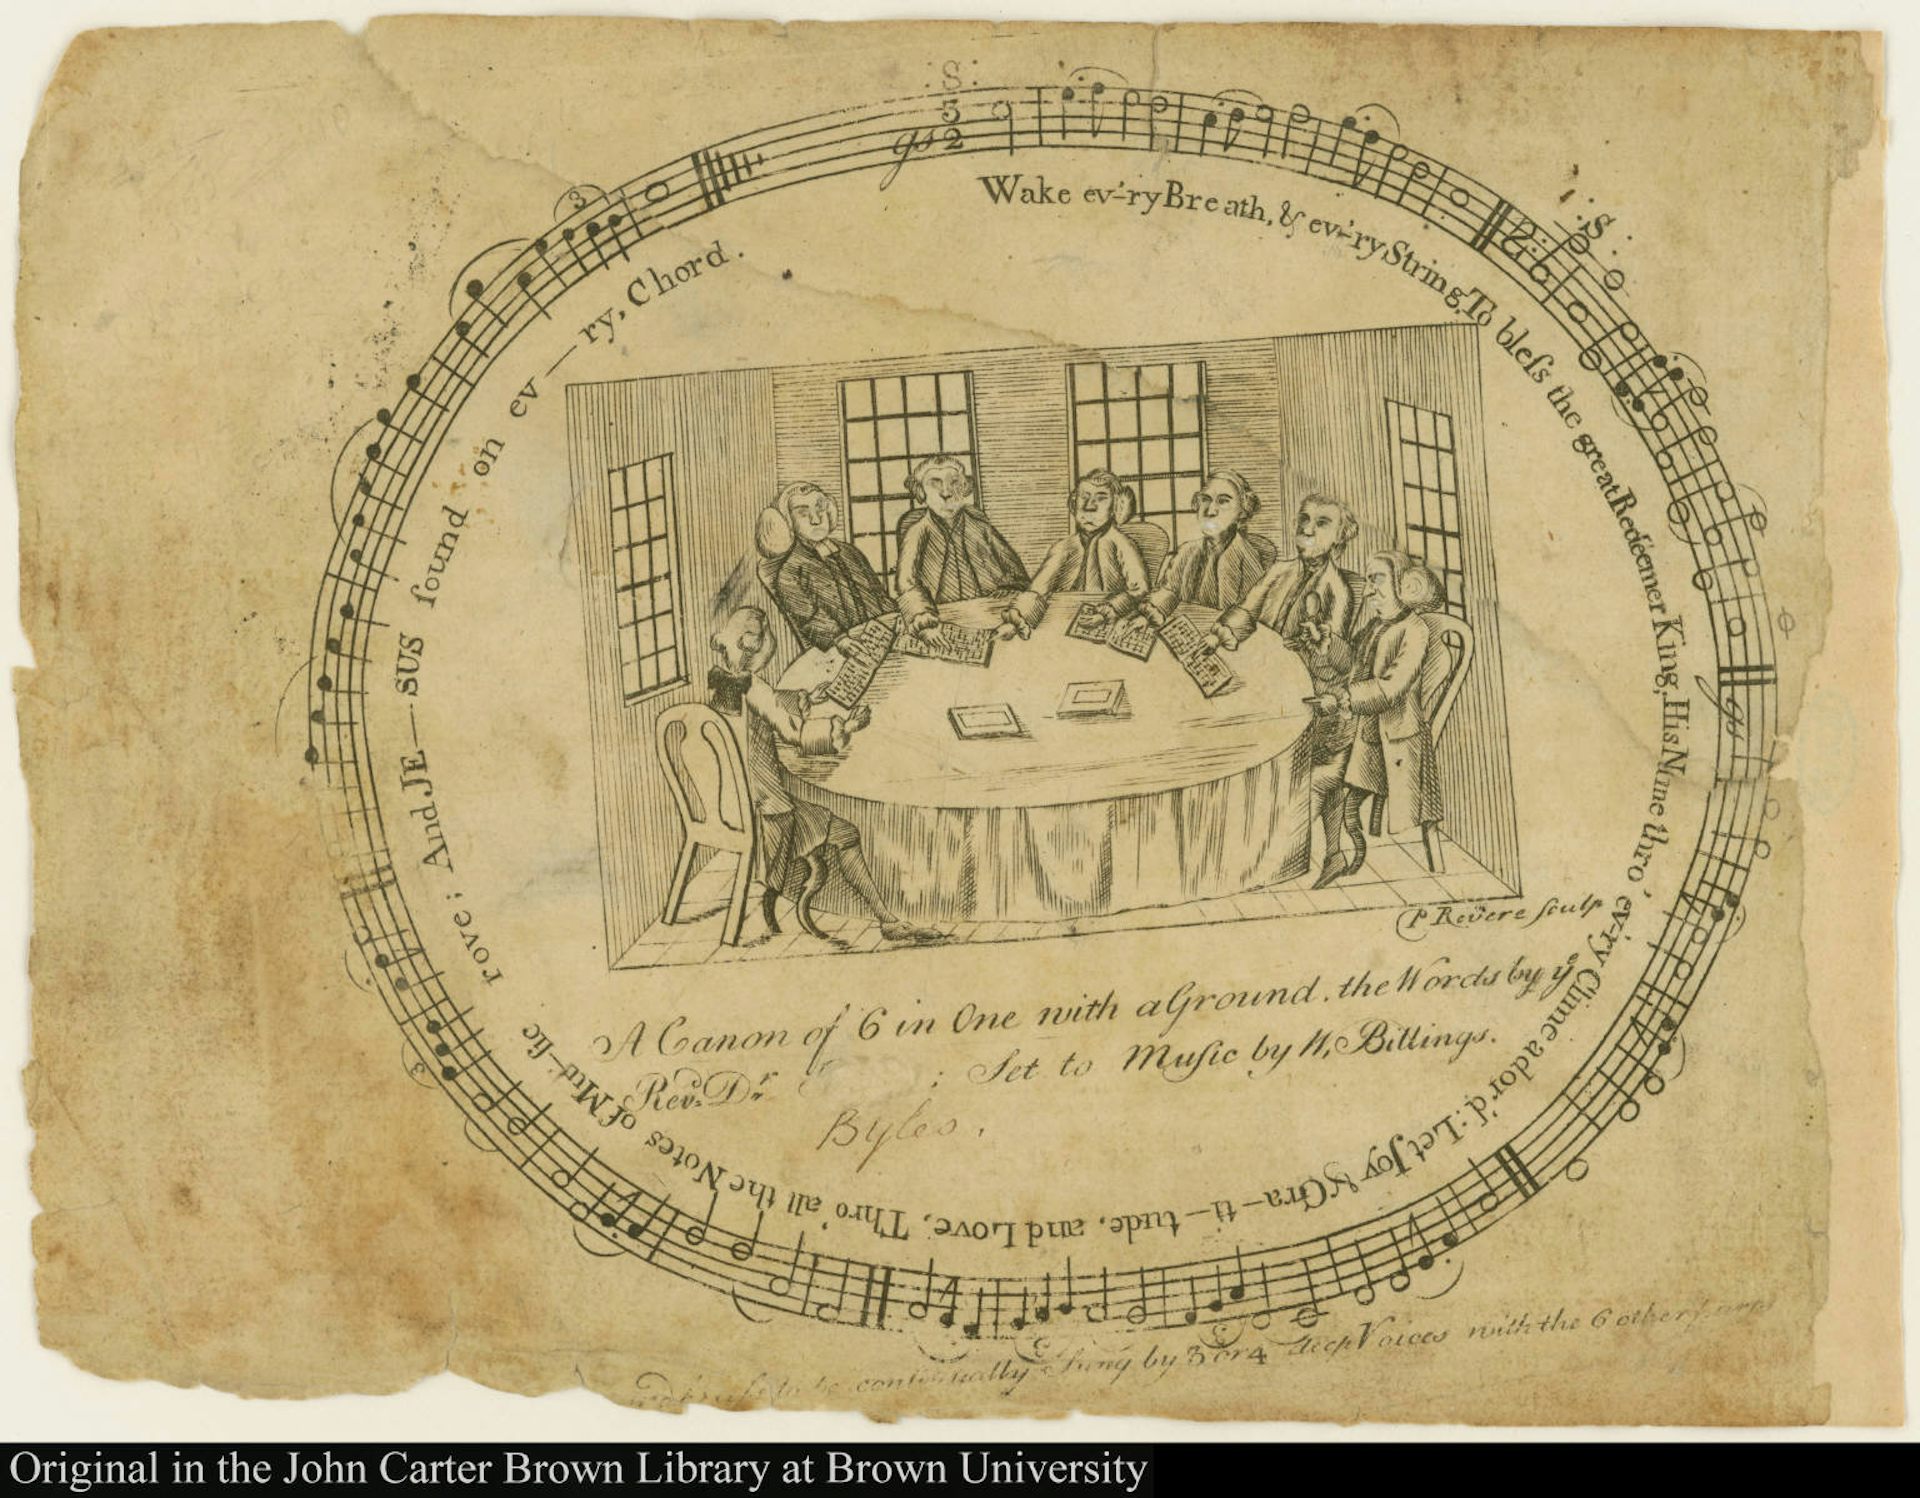 :S:
3
gs 2
Wake ev'-ry Breath, & ev'-ry String, To bleſs the great Redeemer King, His Name thro' ev'-ry Clime ador'd: Let Joy & Gra-ti-tude, and Love, Thro' all the Notes of Mu-ſic rove; And JE-SUS ſound on ev-ry, Chord.
:S:
gs
3
3
3
3
P Revere ſculp
A Canon of 6 in One with a Ground. the Words by yͤ
Rev.ᵈ Dʳ ; Set to Muſic by W, Billings.
Byles.
to be continually Sung by 3 or 4 deep Voices with the 6 other parts
Original in the John Carter Brown Library at Brown University